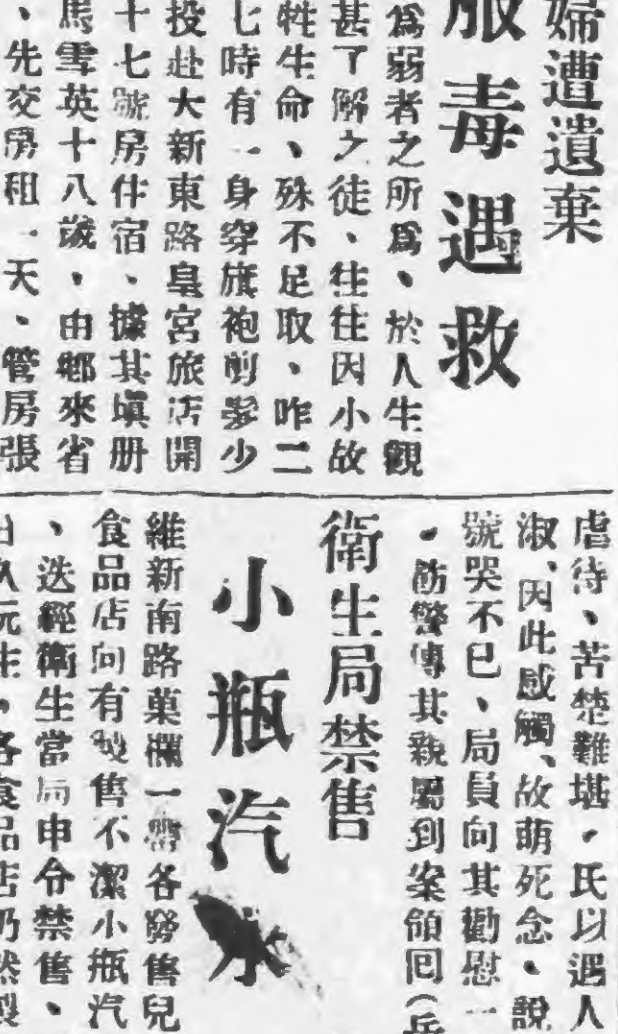 婦遭遺棄
服毒遇救
爲弱者之所爲、於人生觀
甚了解之徒、往往因小故
牲生命、殊不足取、昨二
七時有一身穿旗袍剪髮少
投赴大新東路皇宮旅店開
十七號房住宿、據其塡册
馬雪英十八歲、由鄕來省
、先交房租一天、管房張
虐待、苦楚難堪、氏以遇人
淑、因此感觸、故萌死念、說
號哭不已、局員向其勸慰一
、飭警傳其親屬到案領回(岳
衛生局禁售
小瓶汽水
維新南路菓欄一帶各發售兒
食品店向有製售不潔小瓶汽
、迭經衛生當局申令禁售、
玩生、各食品店仍然製